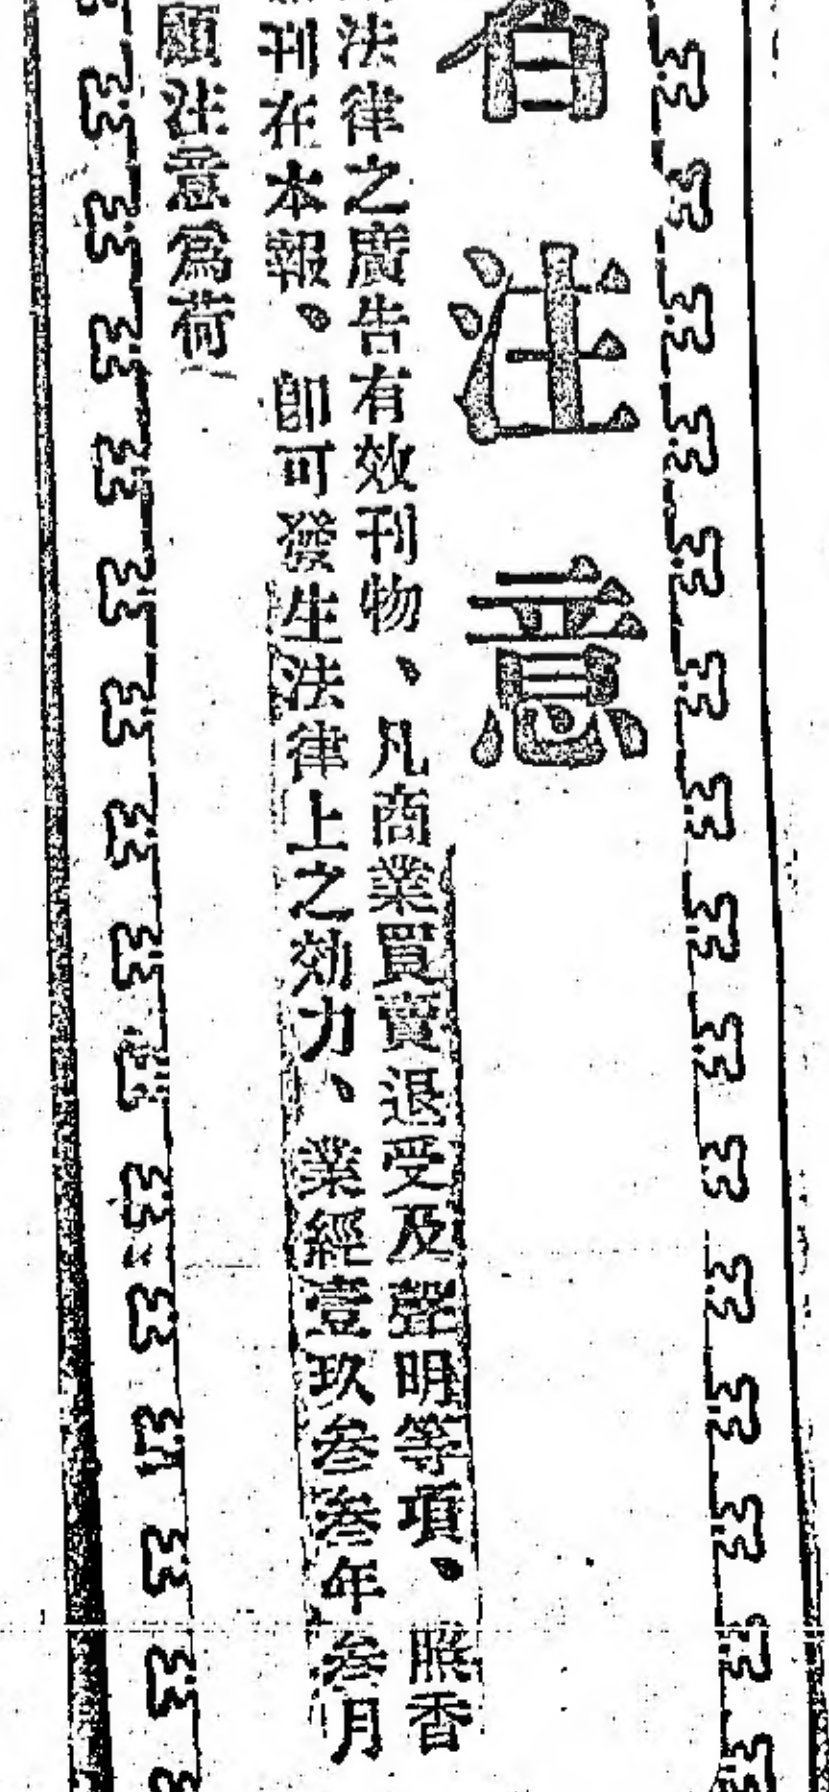 者注意
法律之廣告有效刊物、凡商業買賣退受及聲明等項、照香
刊在本報、卽可發生法律上之効力、業經壹玖叁叁年叁月
顧注意爲荷